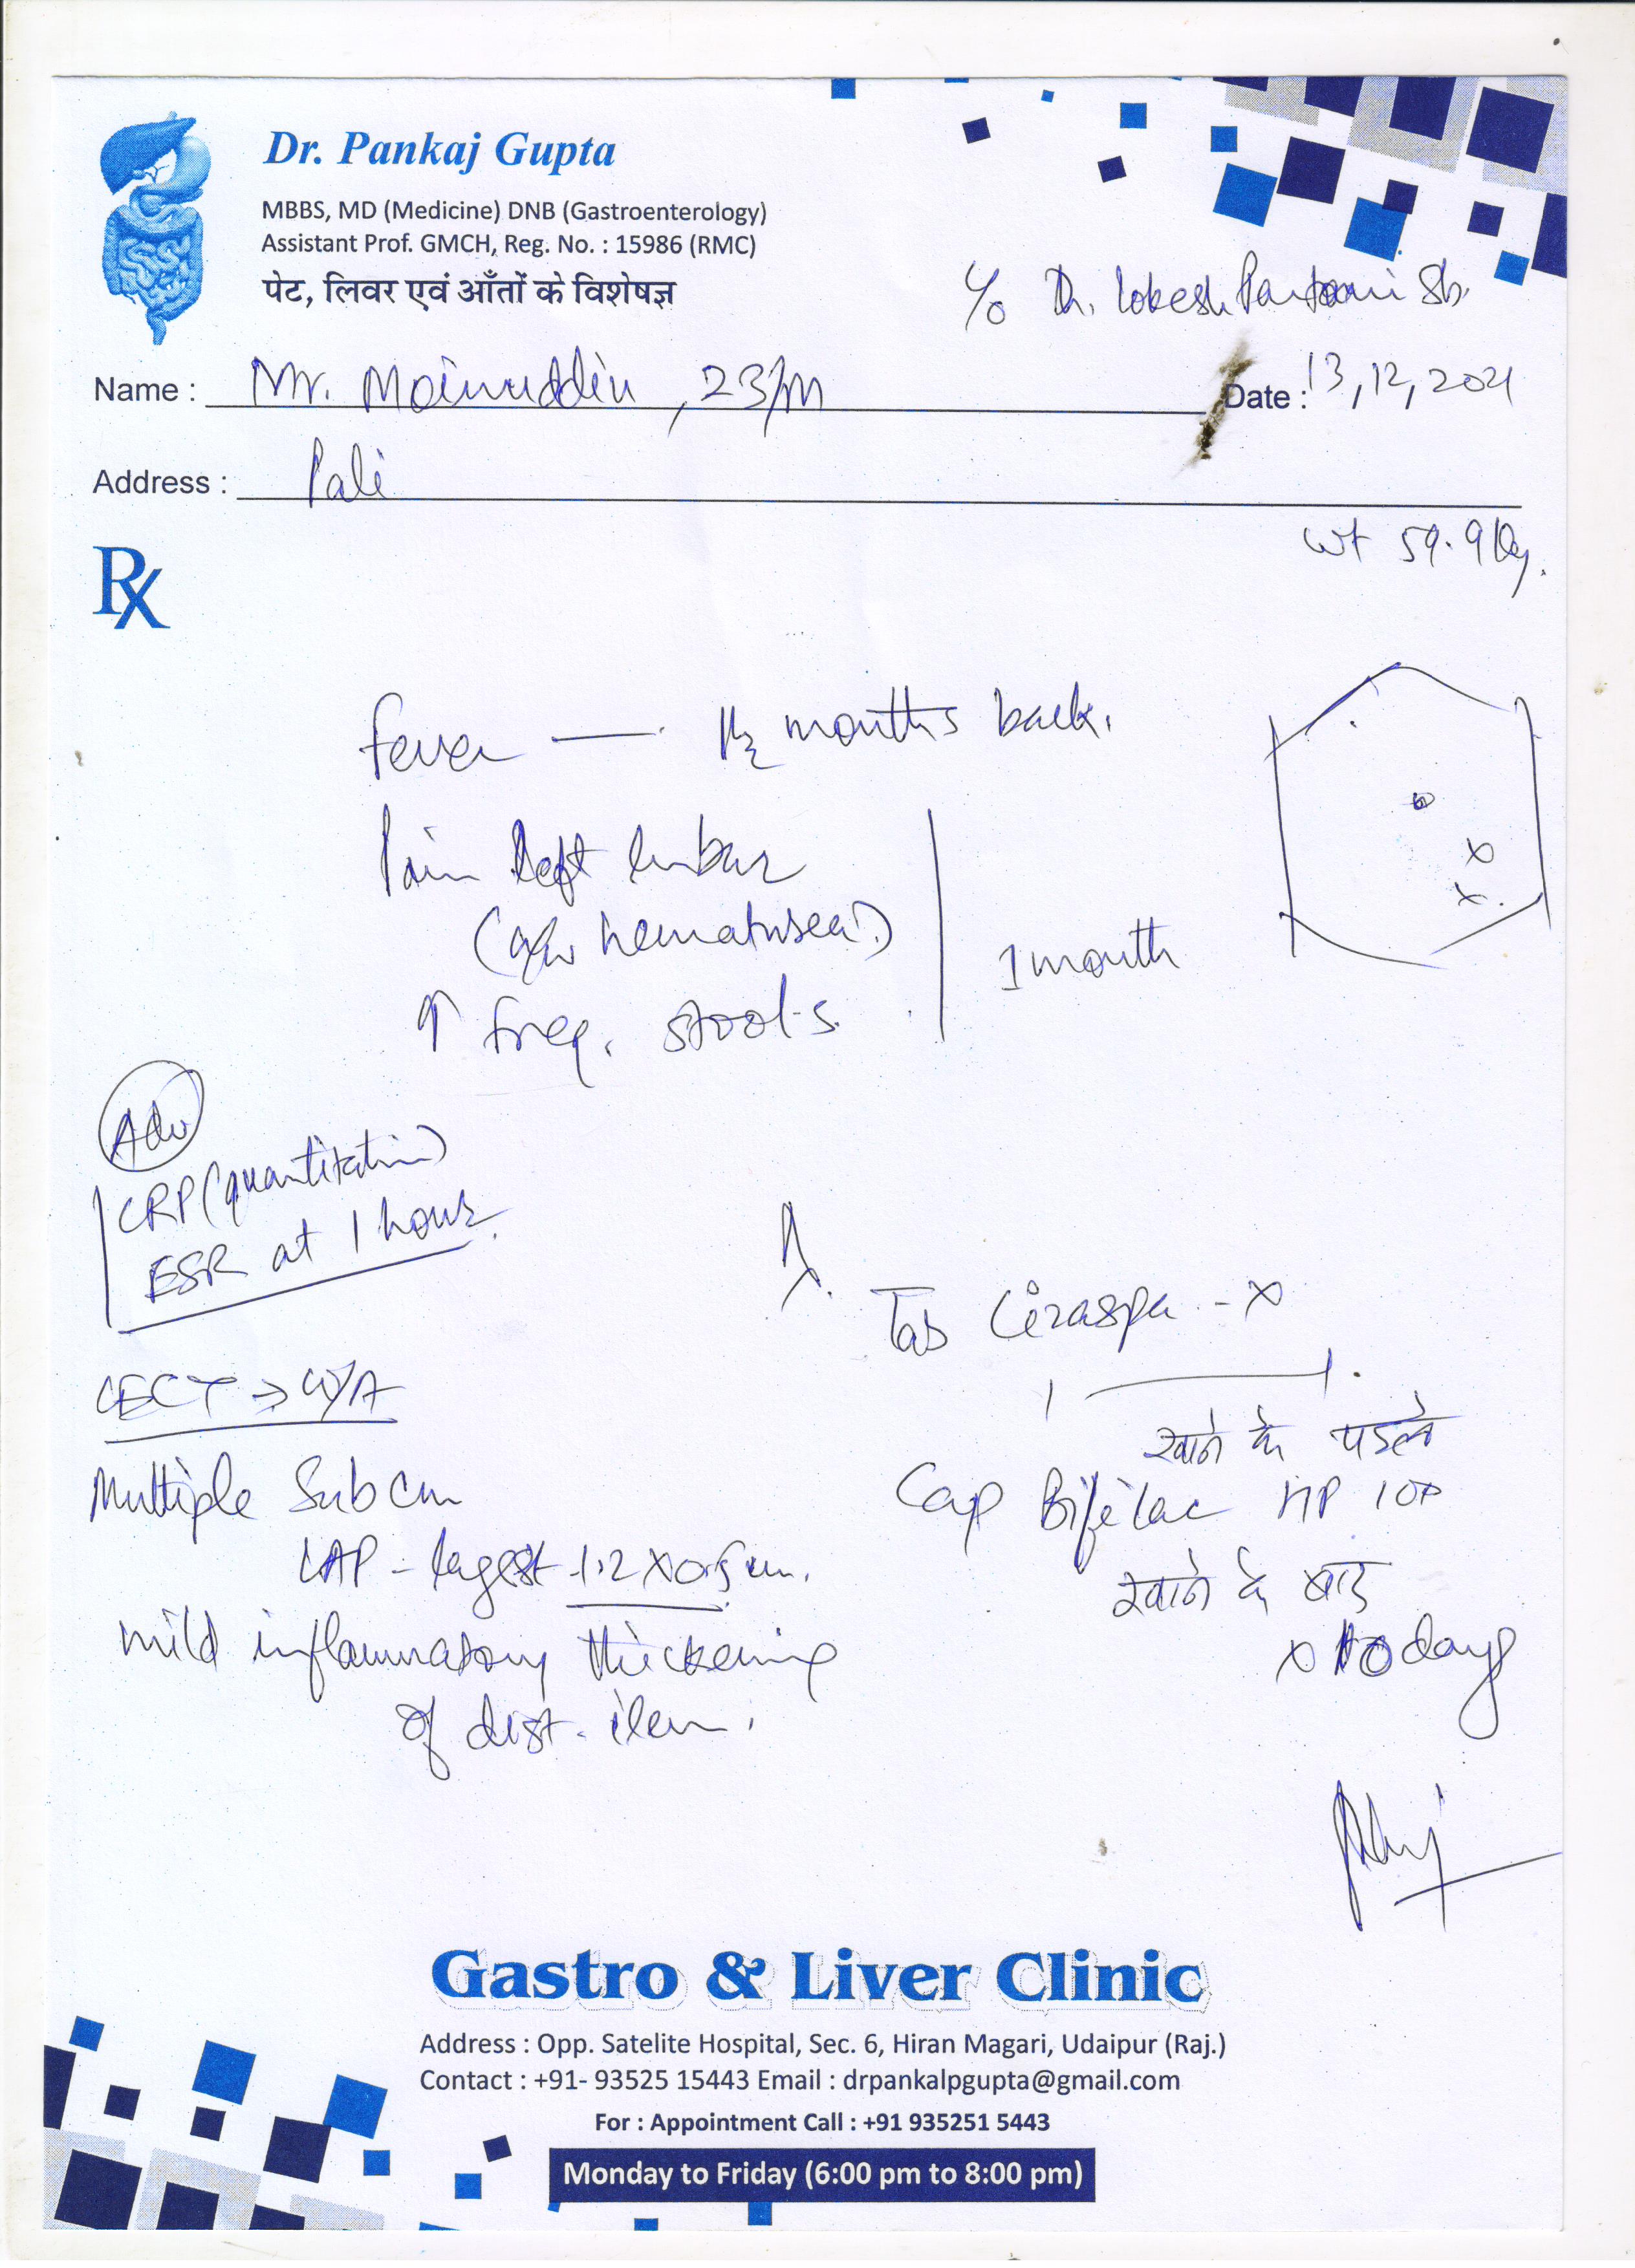 Dr. Pankaj Gupta
MBBS, MD (Medicine) DNB (Gastroenterology)
Assistant Prof. GMCH, Reg. No. : 15986 (RMC)
पेट, लिवर एवं आँतों के विशेषज्ञ
Dr. Lokesh
Name : Mr. Moinuddin, 23/M
Date : 13, 12, 2021
Address : Pali
Wt 59.9 Kg.
Rx
fever — 1½ months back.
Pain left lumbar
hematuria
↑ freq. stools
1 month
Adv
CRP (quantitative)
ESR at 1 hour
Tab
CECT → W/A
1 — 1
खाने के पहले
Multiple Sub cm
Cap Bifilac HP
LAP - largest 1.2 x 0.5 cm.
खाने के बाद
mild inflammatory thickening
x 10 days
of dist. ileum.
Gastro & Liver Clinic
Address : Opp. Satelite Hospital, Sec. 6, Hiran Magari, Udaipur (Raj.)
Contact : +91- 93525 15443 Email : drpankalpgupta@gmail.com
For : Appointment Call : +91 935251 5443
Monday to Friday (6:00 pm to 8:00 pm)